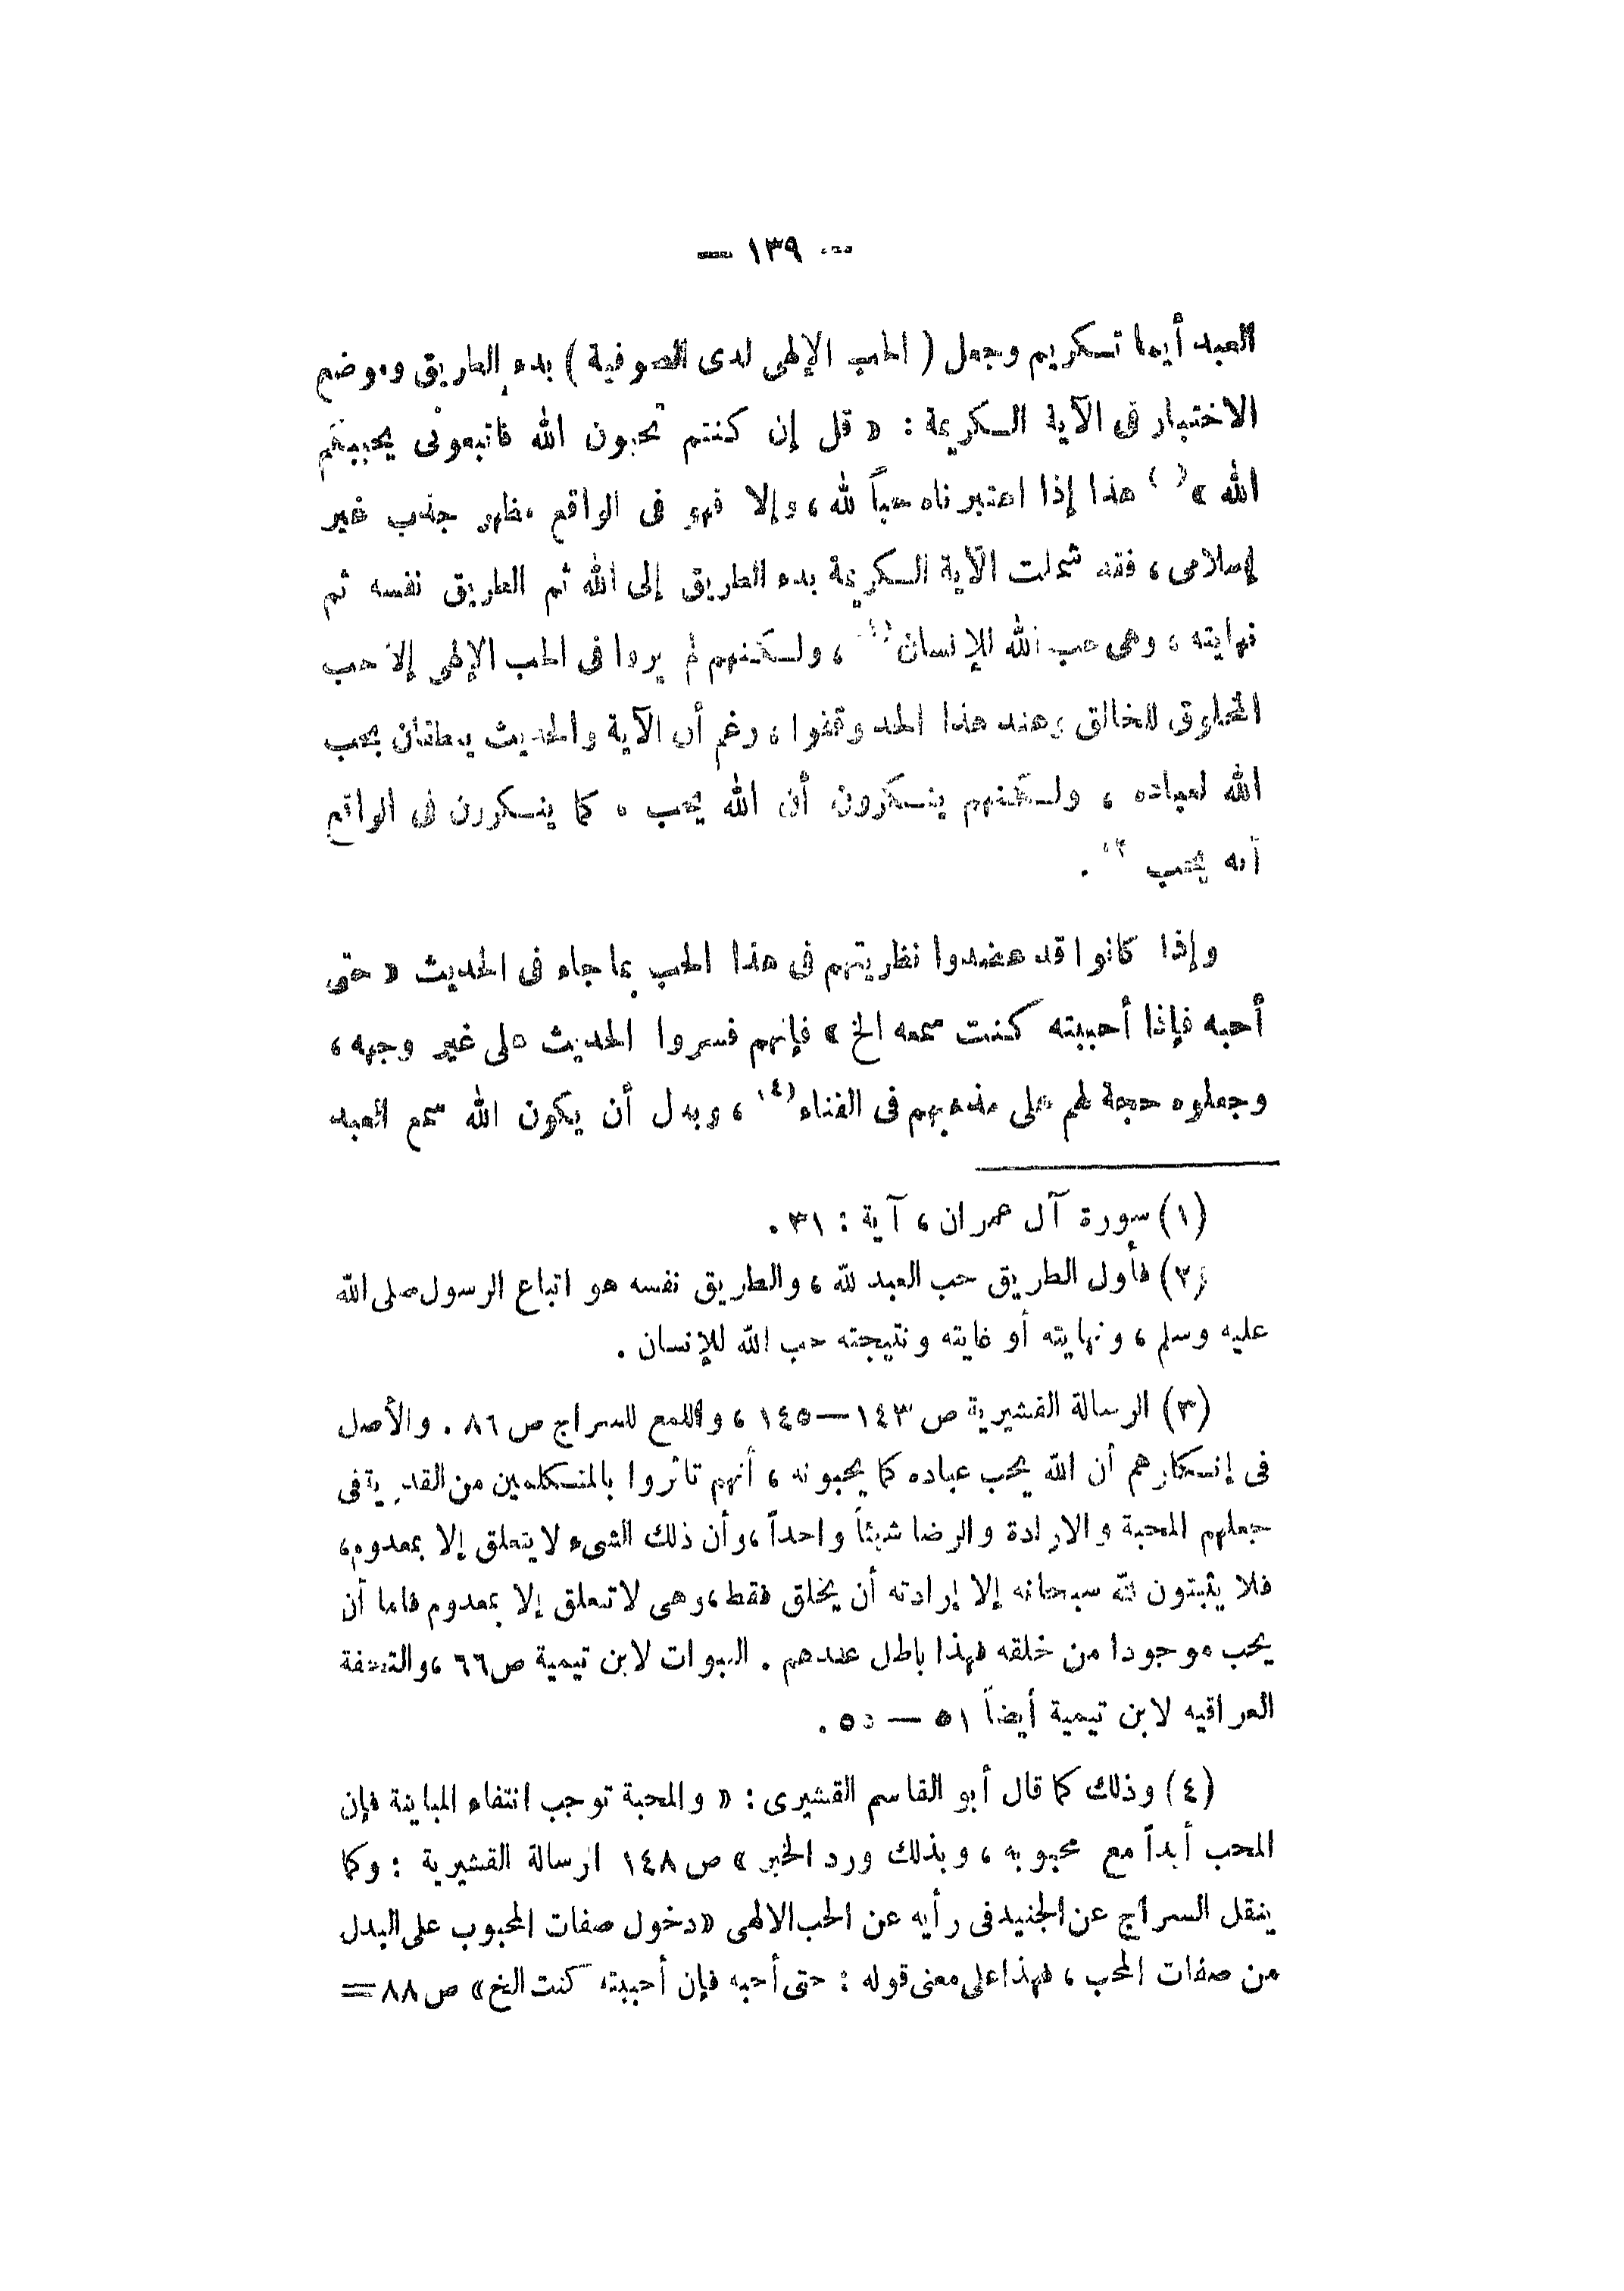 — ١٣٩ —
العبد أيما تكريم وجعل ( الحب الإلهى لدى الصوفية ) بدء الطريق وموضع
الاختبار فى الآية الكريمة : « قل إن كنتم تحبون الله فاتبعونى يحببكم
الله » ( ) هذا إذا اعتبرناه حباً لله ، وإلا فهو فى الواقع مظهر جذب غير
إسلامى ، فقد شملت الآية الكريمة بدء الطريق إلى الله ثم الطريق نفسه ثم
نهايته ، وهى حب الله للإنسان ، ولكنهم لم يروا فى الحب الإلهى إلا حب
المخلوق للخالق وعند هذا الحد وقفوا ، رغم أن الآية والحديث ينطقان بحب
الله لعباده ، ولكنهم ينكرون أن الله يحب ، كما ينكرون فى الواقع
أنه يحب .
وإذا كانوا قد عضدوا نظريتهم فى هذا الحب بما جاء فى الحديث « حتى
أحبه فإذا أحببته كنت سمعه الخ » فإنهم فسروا الحديث على غير وجهه ،
وجعلوه حجة لهم على مذهبهم فى الفناء (٤) ، وبدل أن يكون الله سمع العبد
(١) سورة آل عمران ، آية : ٣١ .
(٢) فأول الطريق حب العبد لله ، والطريق نفسه هو اتباع الرسول صلى الله
عليه وسلم ، ونهايته أو غايته ونتيجته حب الله للإنسان .
(٣) الرسالة القشيرية ص ١٤٣ — ١٤٥ ، واللمع للسراج ص ٨٦ . والأصل
فى إنكارهم أن الله يحب عباده كما يحبونه ، أنهم تأثروا بالمتكلمين من القدرية فى
جعلهم المحبة والإرادة والرضا شيئاً واحداً ، وأن ذلك الشىء لا يتعلق إلا بمعدوم ،
فلا يثبتون لله سبحانه إلا إرادته أن يخلق فقط ، وهى لا تتعلق إلا بمعدوم فاما أن
يحب موجودا من خلقه فهذا باطل عندهم . النبوات لابن تيمية ص ٦٦ ، والتحفة
العراقيه لابن تيمية أيضاً ٥١ — ٥٥ .
(٤) وذلك كما قال أبو القاسم القشيرى : « والمحبة توجب انتفاء المباينة فإن
المحب أبداً مع محبوبه ، وبذلك ورد الخبر » ص ١٤٨ الرسالة القشيرية : وكما
ينقل السراج عن الجنيد فى رأيه عن الحب الالهى « دخول صفات المحبوب على البدل
من صفات المحب ، فهذا على معنى قوله : حتى أحبه فإن أحببته كنت الخ » ص ٨٨ =